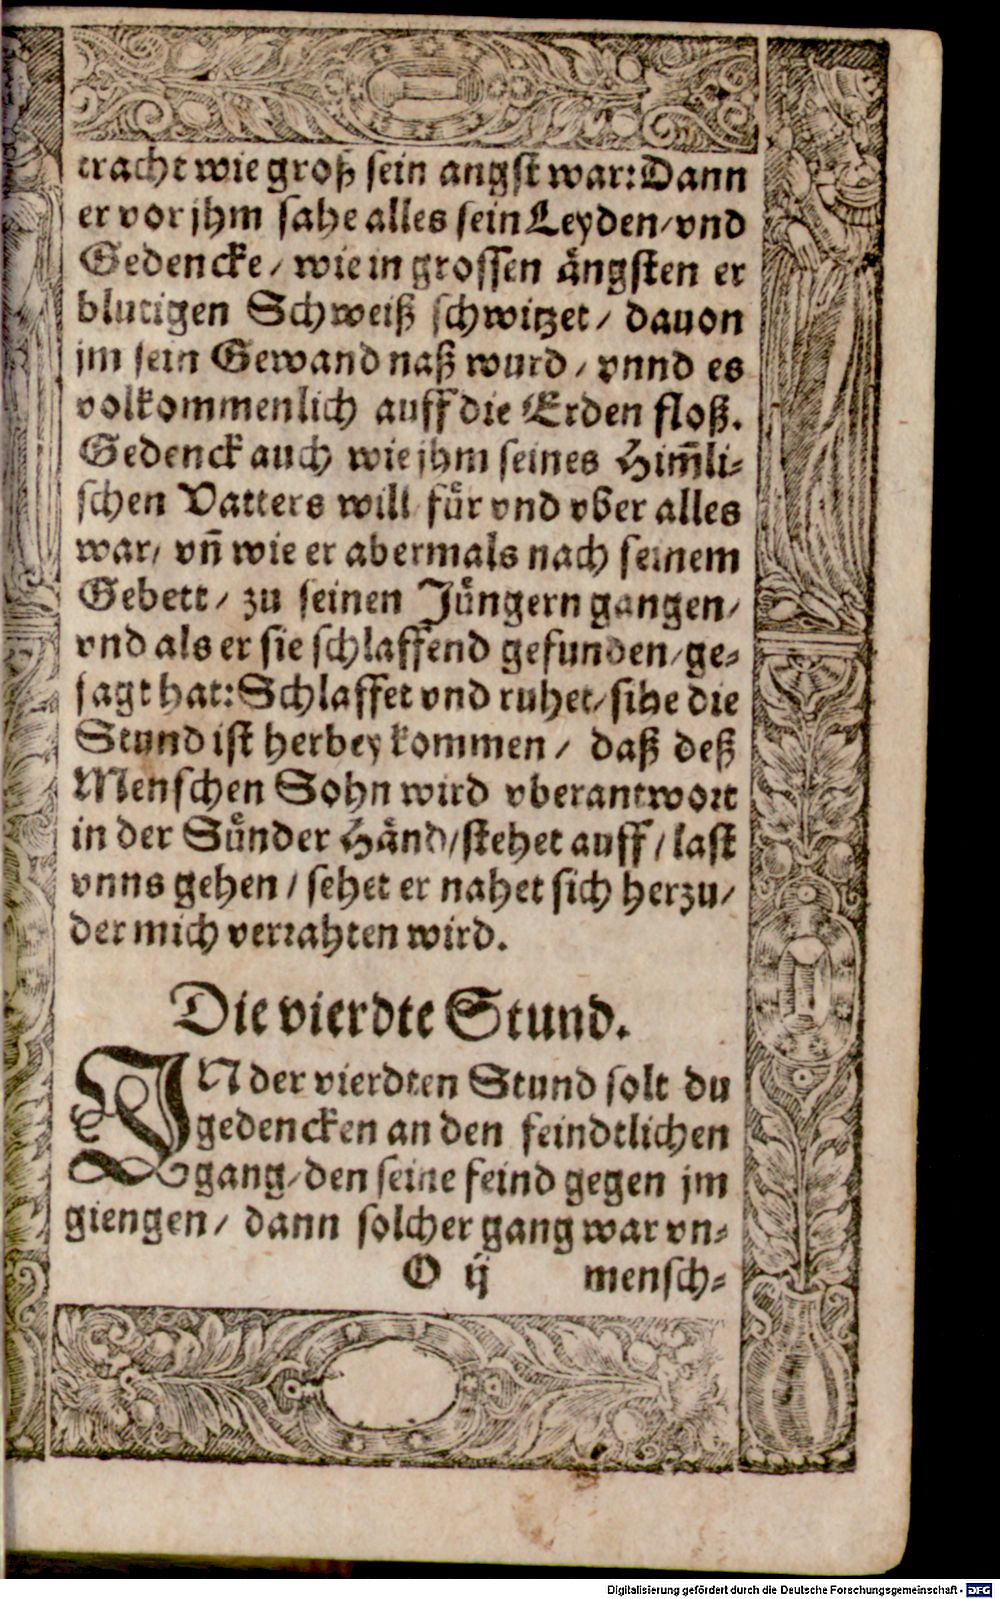 tracht wie groß sein angst war: Dann
er vor jhm sahe alles sein Leyden/ vnd
Gedencke/ wie in grossen ängsten er
blutigen Schweiß schwitzet/ dauon
jm sein Gewand naß wurd/ vnnd es
volkommenlich auff die Erden floß.
Gedenck auch wie jhm seines Him̃li-
schen Vatters will für vnd vber alles
war/ vñ wie er abermals nach seinem
Gebett/ zu seinen Jüngern gangen/
vnd als er sie schlaffend gefunden/ ge-
sagt hat: Schlaffet vnd ruhet/ sihe die
Stund ist herbey kommen/ daß deß
Menschen Sohn wird vberantwort
in der Sünder Händ/ stehet auff/ last
vnns gehen/ sehet er nahet sich herzu/
der mich verrahten wird.
Die vierdte Stund.
IN der vierdten Stund solt du
gedencken an den feindtlichen
gang/ den seine feind gegen jm
giengen/ dann solcher gang war vn-
O ij mensch-
Digitalisierung gefördert durch die Deutsche Forschungsgemeinschaft - DFG